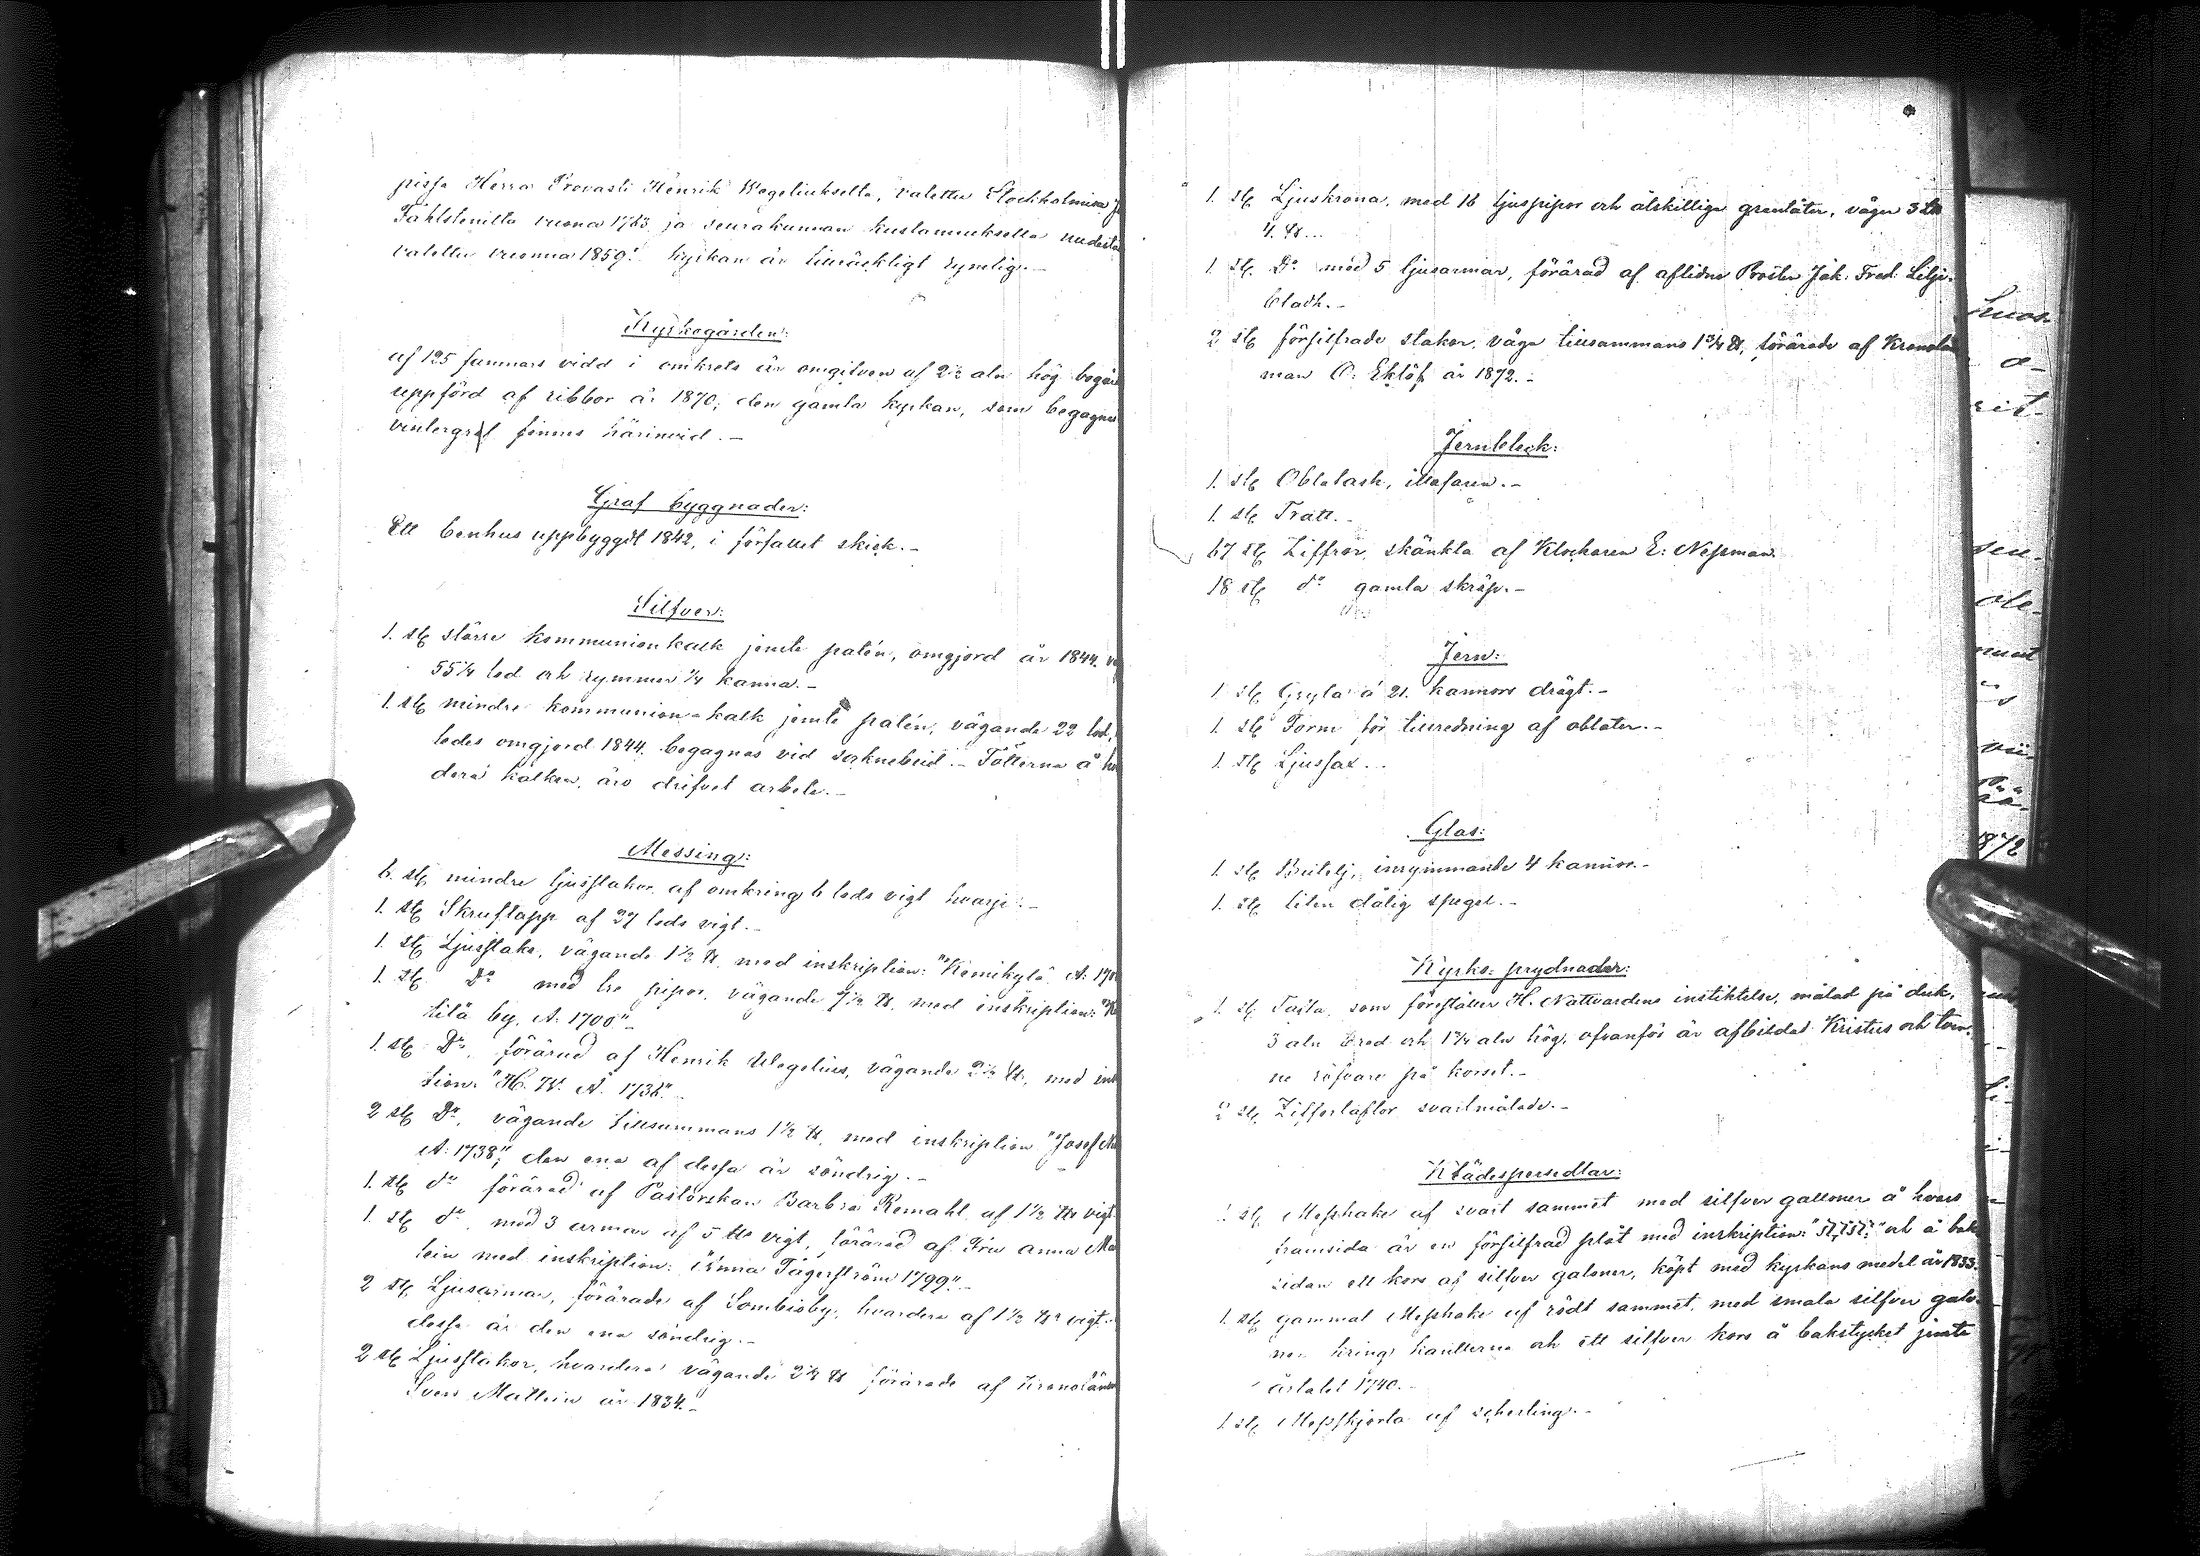 pissa Herra Provasti Henrik Wegeliukselta, valettu Stockholmissa
Fahlstenilta vuona 1763 ja seurakunnan kustannuksella uudesta
valettu vuonna 1859". Kyrkan är tillräckligt rymlig.-
Kyrkogården:
af 125 famnars vidd i omkrets är omgifven af 2½ aln hög
uppförd af ribbor år 1870; den gamla kyrkan, som begagnas
vintergraf finnes härinvid.-
Graf byggnader:
Ett benhus uppbyggdt 1842, i förfallet skick.-
Silfver:
1. st. större kommunionkalk jemte patén, omgjord år 1844.
55¼ lod och rymmer ¼ kanna.-
1. st. mindre kommunion-kalk jemte patén, vägande 22 lod,
ledes omgjord 1844. begagnas vid sockneb.d.- Fötterna å
dera kalken, äro drifvet arbete.-
Messing:
6. st. mindre ljusstakar af omkring 6 lods vigt hvarje.-
1. st. Skruftapp af 27 lods vigt.-
1. st. Ljusstake, vägande 1½ ℔, med inskription: "Kemikylä A: 170
1. st. Do med tre pipor, vägande 7½ ℔, med inskription: "K
kilä by, A. 1700".-
1. st. Do, förärad af Henrik Wegelius, vägande 2½ ℔, med ins
tion: "H. W. A. 1738".-
2 st. Do, vägande tillsammans 1½ ℔, med inskription "Josef
A: 1738"; den ena af dessa är söndrig.-
1. st. do förärad af Pastorskan Barbra Remahl, af 1½ ℔s vigt.
1. st. do, med 3 armar af 5 ℔s vigt, förärad af Fru Anna Ma
lein med inskription: "Anna Tägerström 1799".-
2 st. Ljusarmar, förärade af Sombioby, hvardera af 1½ ℔s vigt.-
dessa är den ena söndrig.-
2 st. Ljusstakar, hvardera vägande 2¾ ℔ förärade af kronolän
Sven Mathein år 1834.-
1. st. Ljuskrona, med 16 ljuspipor och åtskilliga granlåter, väger 3 L℔
4. ℔...
1 st. Do med 5 ljusarmar, förärad af aflidne Prosten Jak. Fred. Lilje-
bladh.-
2 st. försilfrade stakar, väga tillsammans 1¾ ℔, förärade af Kronolän
man O: Eklöf år 1872.-
Jernbleck:
1. st. Oblatask, illafaren.-
1. st. Tratt.-
67 st. Ziffror, skänkta af Klockaren E: Nessman
18 st. do gamla skräp.-
Jern:
1 st. Gryta à 21. kannors drägt.-
1. st. Form för tillredning af oblater.-
1 st. Ljussax..
Glas:
1. st. Buteilj, inrymmande 4 kannor.-
1. st. liten dålig spegel.-
Kyrko-prydnader:
1. st. Tafla, som föreställer H. Nattvardens instiktelse, målad på duk,
3 aln bred och 1¾ aln hög, ofvanför är afbildad Kristus och tven-
ne röfvare på korset.-
2 st. Ziffertaflor svartmålade.-
Klädespersedlar:
1 st. Messhake af svart sammet med silfver galloner å hvars
framsida är en försilfrad plåt med inskription: och å bak
sidan ett kors af silfver galoner, köpt med kyrkans medel år 1833.
1. st. gammal Messhake af rödt sammet, med smala silfver galo-
ner kring kanterna och ett silfver kors å bakstycket jemte
årtalet 1740.-
1. st. Messkjorta af scherting.-
1872